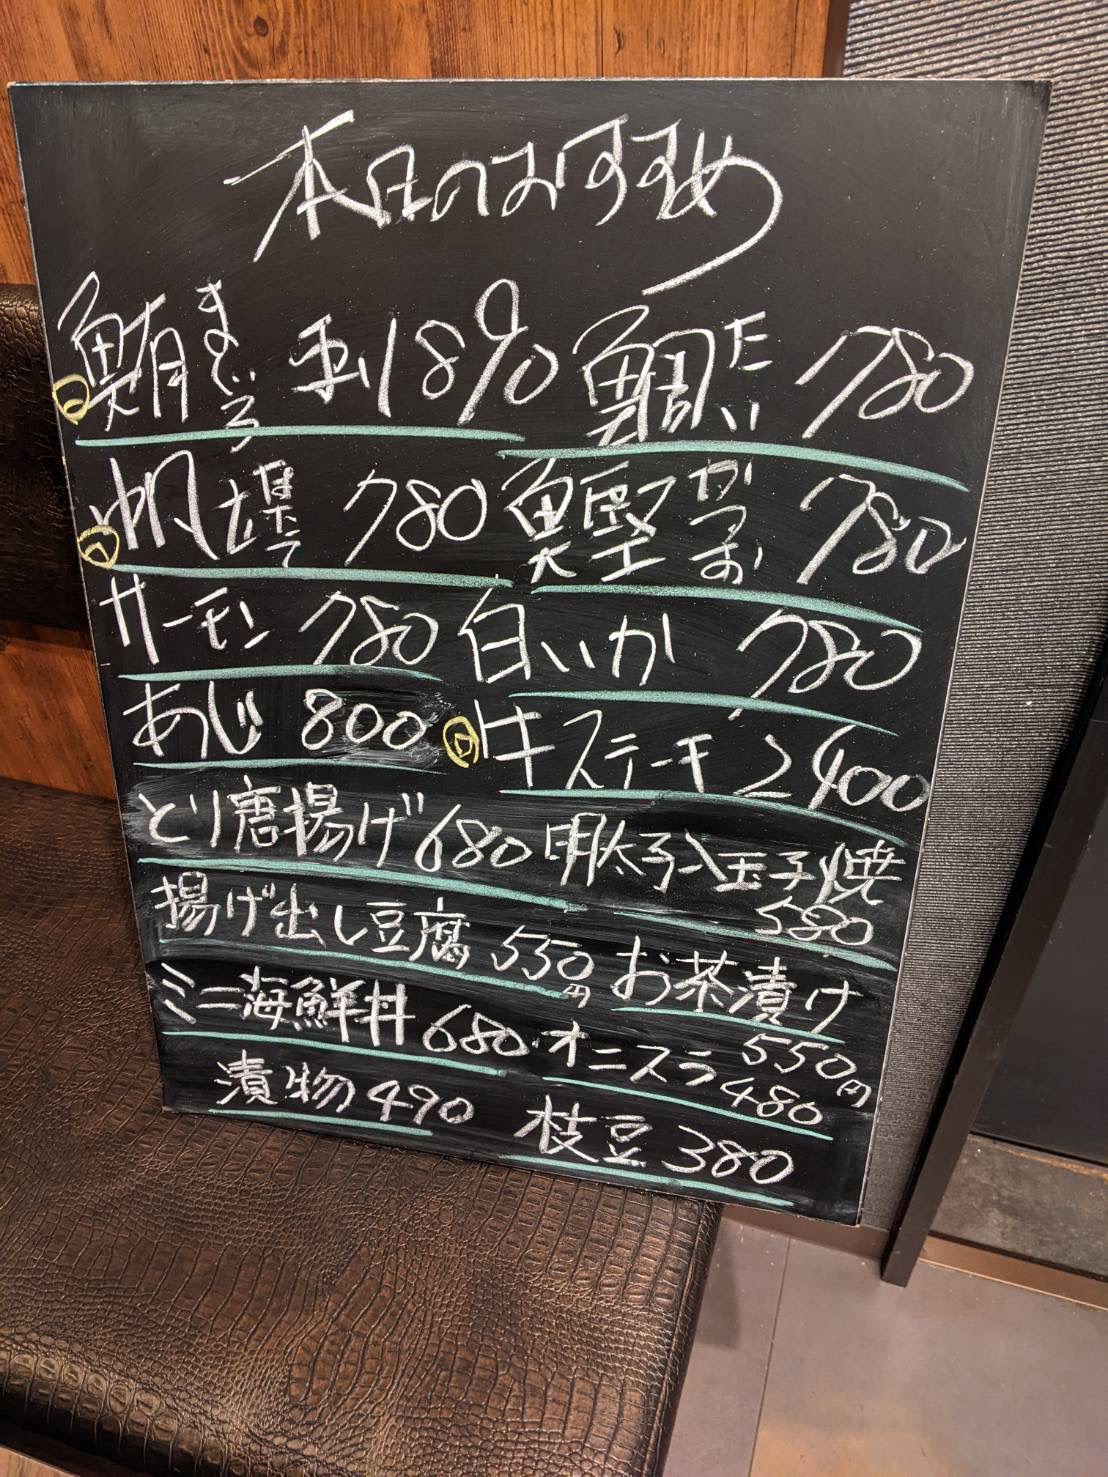 本日のおすすめ
鮪 まぐろ 1890
鯛 たい 780
帆立 ほたて 780
鰹 かつお 780
サーモン 780
白いか 780
あじ 800
牛ステーキ 2400
とり唐揚げ 680
明太子入玉子焼
580
揚げ出し豆腐 550円
お茶漬け
550円
ミニ海鮮丼 680
オニスラ 480
漬物 490
枝豆 380